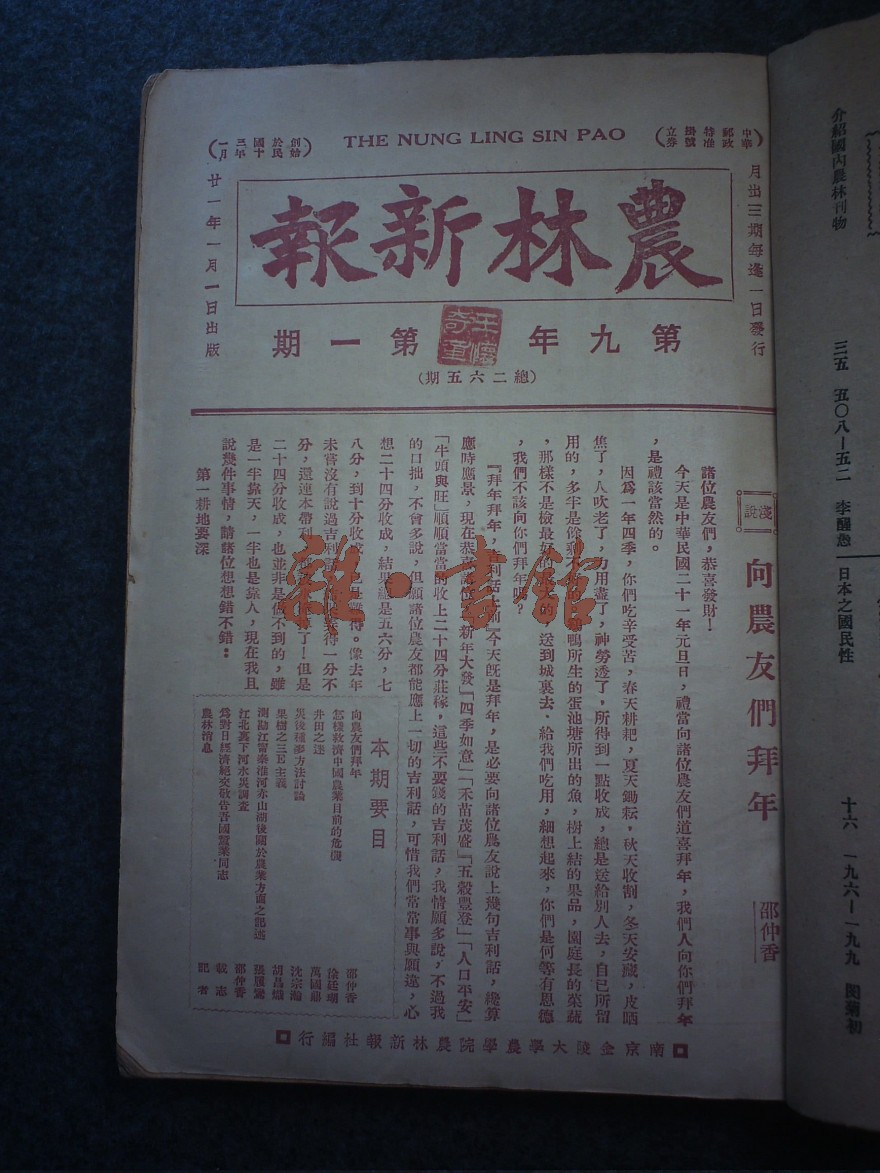 創始於民國十三年一月
THE NUNG LING SIN PAO
中華郵政特准掛號立券
月出三期每逢一日發行
農林新報
廿一年一月一日出版
第九年 第一期
(總二六五期)
淺說
向農友們拜年
邵仲香
諸位農友們，恭喜發財！
今天是中華民國二十一年元旦日，禮當向諸位農友們道喜拜年，我們人向你們拜年
，是禮該當然的。
因為一年四季，你們吃辛受苦，春天耕耙，夏天鋤耘，秋天收割，冬天安藏，皮晒
焦了，人吹老了，力用盡了，神勞透了，所得到一點收成，總是送給別人去，自己所留
用的，多半是
鴨所生的蛋池塘所出的魚，樹上結的果品，園庭長的菜蔬
，那樣不是檢最好的
送到城裏去，給我們吃用，細想起來，你們是何等有恩德
，我們不該向你們拜年嗎？
『拜年拜年，吉利話上前』今天既是拜年，是必要向諸位農友說上幾句吉利話，纔算
應時應景，現在恭
新年大發」「四季如意」「禾苗茂盛」「五穀豐登」「人口平安」
「牛頭興旺」順順當當的收上二十四分莊稼，這些不要錢的吉利話，我情願多說，不過我
的口拙，不會多說，但願諸位農友都能應上一切的吉利話，可惜我們常常事與願違，心
想二十四分收成，結果總是五六分，七
八分，到十分收成
已是難得。像去年
未嘗沒有說過吉利
得一分不
分，還連本帶利
了！但是
二十四分收成，也並非是做不到的，雖
是一半靠天，一半也是靠人，現在我且
說幾件事情，請諸位想想錯不錯：
第一耕地要深
本期要目
向農友們拜年 邵仲香
怎樣救濟中國農業目前的危機 徐廷瑚
井田之迷 萬國鼎
災後種麥方法討論 沈宗瀚
果樹之三E主義 胡昌熾
測勘江甯秦淮河赤山湖後關於農業方面之記述 張履鸞
江北裏下河水災調查 邵仲香
為對日經濟絕交敬告吾國蠶業同志 載志
農林消息 記者
南京金陵大學農學院農林新報社編行
雜·書館
介紹國內農林刊物
三五 五〇八—五一二 李醒愚
日本之國民性
十六 一九六—一九九 閔菊初